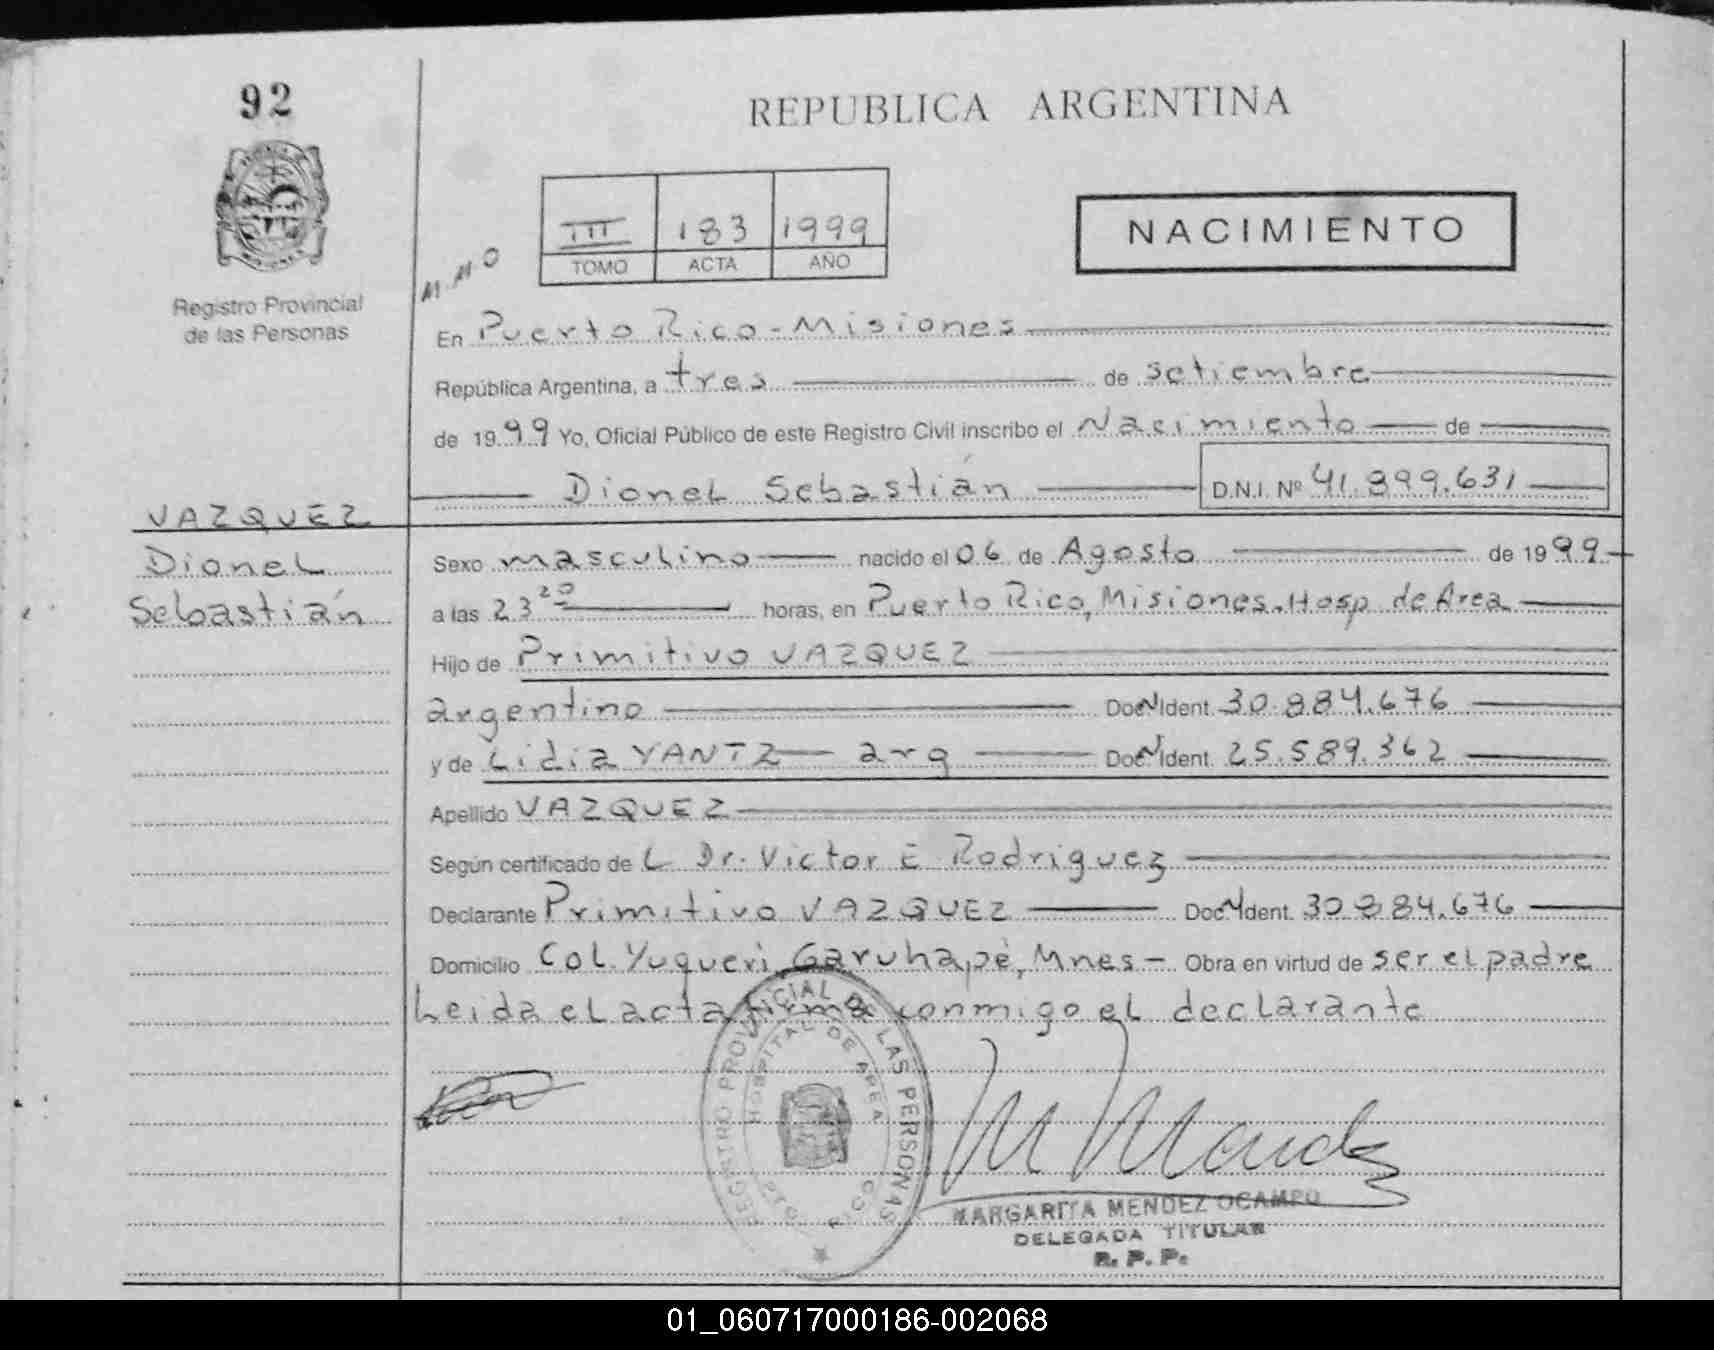 92
REPUBLICA ARGENTINA
III 183 1999
TOMO ACTA AÑO
NACIMIENTO
Registro Provincial
de las Personas
En Puerto Rico - Misiones
República Argentina, a tres de setiembre
de 1999 Yo, Oficial Público de este Registro Civil inscribo el Nacimiento de
Dionel Sebastián D.N.I. Nº 41.899.631
VAZQUEZ
Dionel
Sebastián
Sexo masculino nacido el 06 de Agosto de 1999
a las 23 20 horas, en Puerto Rico, Misiones. Hosp de Area
Hijo de Primitivo VAZQUEZ
argentino Doc Ident. 30.884.676
y de Lidia YANTZ arg Doc Ident. 25.589.362
Apellido VAZQUEZ
Según certificado de L Dr. Victor E Rodriguez
Declarante Primitivo VAZQUEZ Doc Ident. 30 884.676
Domicilio Col. Yuqueri, Garuhapé, Mnes - Obra en virtud de ser el padre
Leida el acta firma conmigo el declarante
REGISTRO PROVINCIAL DE LAS PERSONAS
HOSPITAL DE AREA
MARGARITA MENDEZ OCAMPO
DELEGADA TITULAR
R. P. P.
01_060717000186-002068